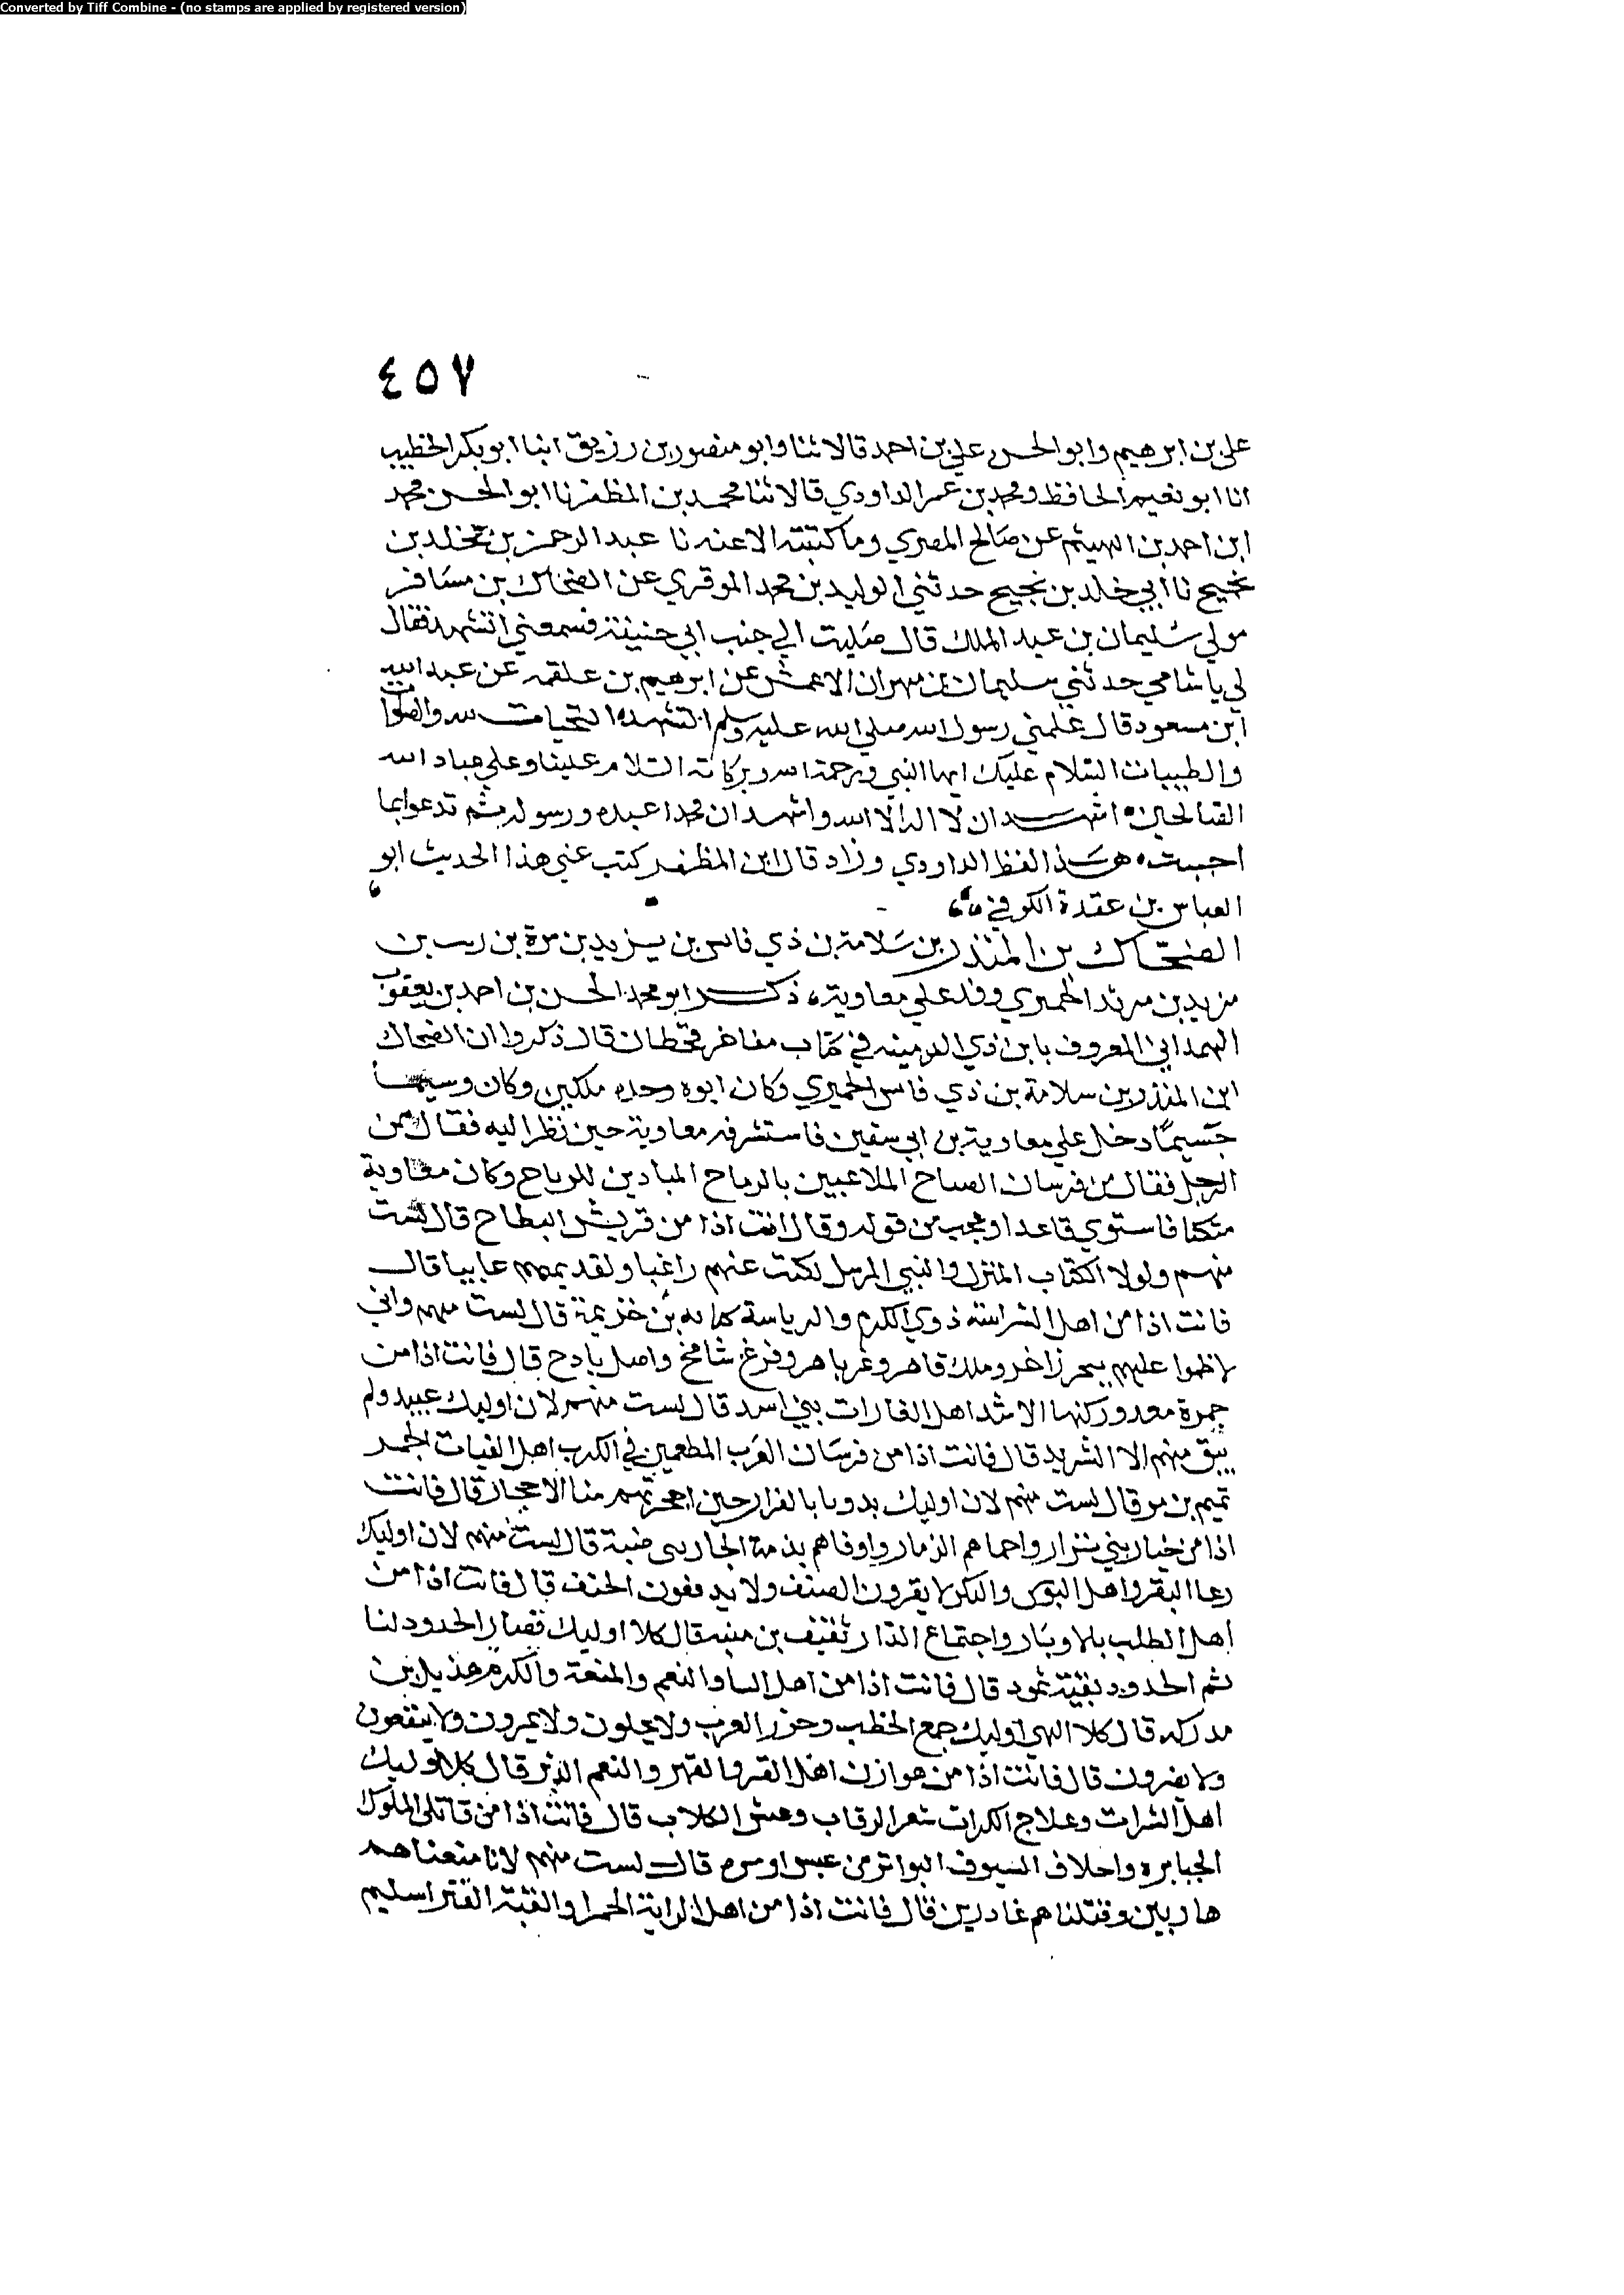 Converted by Tiff Combine - (no stamps are applied by registered version)
٤٥٧
علي بن ابرهيم وابو الحسن علي بن احمد قالا ثنا وابو منصور بن رزيق انبا ابو بكر الخطيب
انا ابو نعيم الحافظ ومحمد بن عمر الداودي قالا ثنا محمد بن المظفر نا ابو الحسن محمد
ابن احمد بن الهيثم عن صالح المصري وما كتبته الا عنه نا عبد الرحمن بن مخلد بن
نجيح نا ابي خالد بن نجيح حدثني الوليد بن محمد الموقري عن الضحاك بن مسافر
مولي سليمان بن عبد الملك قال صليت الي جنب ابي حنيفة فسمعني اتشهد فقال
لي يا شامي حدثني سليمان بن مهران الاعمش عن ابرهيم بن علقمه عن عبد الله
ابن مسعود قال علمني رسول الله صلي الله عليه وسلم التشهد التحيات لله والصلوات
والطيبات السلام عليك ايها النبي ورحمة الله وبركاته السلام علينا وعلي عباد الله
الصالحين اشهد ان لا اله الا الله واشهد ان محمدا عبده ورسوله ثم تدعوا بما
احببت هذا لفظ الداودي وزاد قال ابن المظفر كتب عني هذا الحديث ابو
العباس بن عقدة الكوفي
الضحاك بن المنذر بن سلامة بن ذي فاس بن يزيد بن مرة بن ريب بن
مزيد بن مرثد الحميري وفد علي معاوية ذكر ابو محمد الحسن بن احمد بن يعقوب
الهمداني المعروف بابن ذي الدمينه في كتاب مفاخر قحطان قال ذكروا ان الضحاك
ابن المنذر بن سلامة بن ذي فاس الحميري وكان ابوه وجده ملكين وكان وسيما
جسيما دخل علي معاوية بن ابي سفين فاستشرفه معاوية حين نظر اليه فقال ممن
الرجل فقال من فرسان الصباح الملاعبين بالرماح المبادين للرياح وكان معاوية
متكئا فاستوي قاعدا وعجب من قوله وقال انت اذا من قريش البطاح قال لست
منهم ولولا الكتاب المنزل والنبي المرسل لكنت عنهم راغبا ولقديمهم عايبا قال
فانت اذا من اهل الشراسة ذوي الكرم والرياسة كنانه بن خزيمة قال لست منهم واني
لاطموا عليهم ببحر زاخر وملك قاهر وعز باهر وفرع شامخ واصل باذح قال فانت اذا من
جمرة معد وركنها الاشد اهل الغارات بني اسد قال لست منهم لان اوليك عبيد ولم
يبق منهم الا الشريد قال فانت اذا من فرسان العرب المطعمين في الكرب اهل القباب الحمر
تميم بن مر قال لست منهم لان اوليك بدونا بالفرار حين اجحرتهم منا الاحجار قال فانت
اذا من خيار بني نزار واحماهم الذمار واوفاهم بذمة الجار بني ضبة قال لست منهم لان اوليك
رعا البقر واهل البؤس والنكر لا يقرون الضيف ولا يدفعون الحيف قال فانت اذا من
اهل الطلب بالاوتار واجتماع الدار ثقيف بن منبه قال كلا اوليك قصار الحدود لنا
ثم الحدود بقية ثمود قال فانت اذا من اهل الشا والنعم والمنعة والكرم هذيل بن
مدركه قال كلا الهي اوليك جمع الحطب وحزر العرب ولا يحلون ولا يمرون ولا ينفعون
ولا يضرون قال فانت اذا من هوازن اهل القسر والقهر والنعم الدثر قال كلا اوليك
اهل الشرات وعلاج الكرات شعر الرقاب وعش الكلاب قال فانت اذا من قاتلي الملوك
الجبابره واحلاف السيوف البواتر من عبس او مره قال لست منهم لانا منعناهم
هاربين وقتلناهم غادرين قال فانت اذا من اهل الراية الحمرا والقبة القتر اسليم